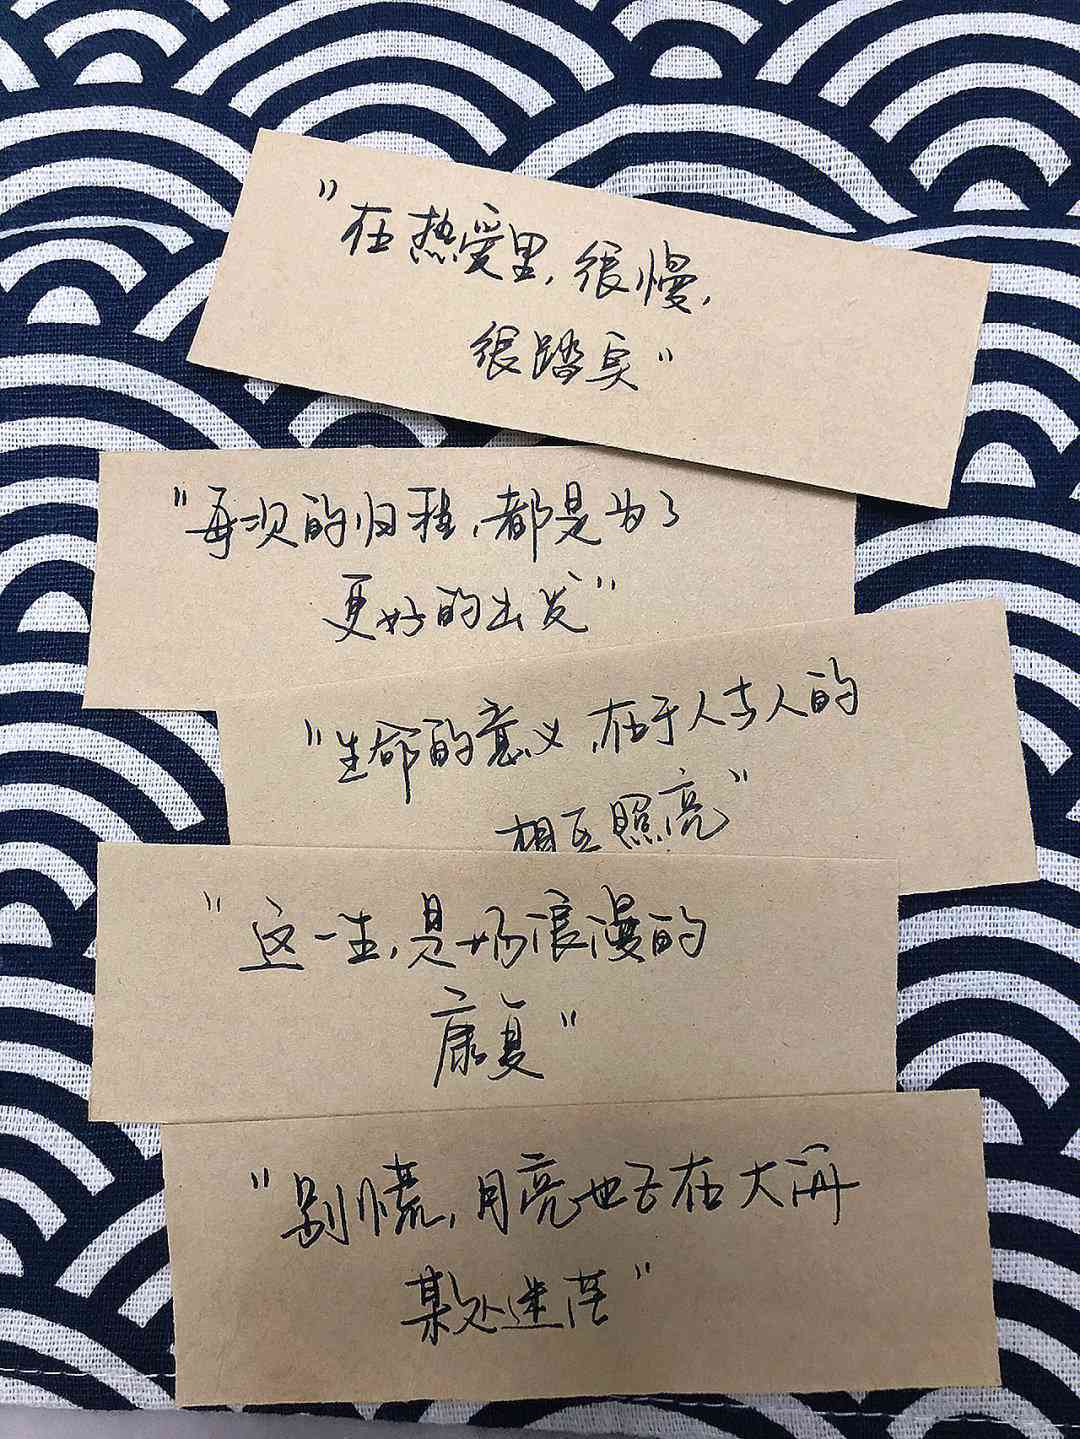 "在热爱里,很慢,
很踏实"
"每次的归程,都是为了
更好的出发"
"生命的意义,在于人与人的
相互照亮"
"这一生,是一场浪漫的
康复"
"别慌,月亮也正在大海
某处迷茫"